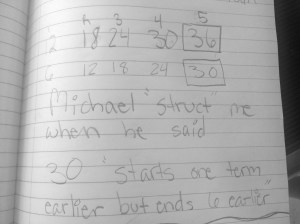 3 4 5
2 18 24 30 36
12 18 24 30
Michael "struct" me
when he said
30 "starts one term
earlier but ends 6 earlier"